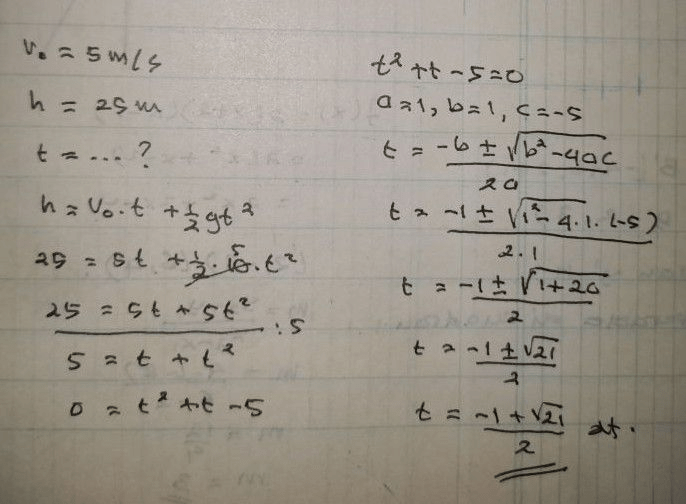 v₀ = 5 m/s
h = 25 m
t = ... ?
h = v₀.t + 1/2 gt²
25 = 5t + 1/2 . 10 . t² 5
25 = 5t + 5t² : 5
5 = t + t²
0 = t² + t - 5
t² + t - 5 = 0
a = 1, b = 1, c = -5
t = -b ± √(b² - 4ac) / 2a
t = -1 ± √(1² - 4.1.(-5)) / 2.1
t = -1 ± √(1 + 20) / 2
t = -1 ± √21 / 2
t = -1 + √21 / 2 dt.